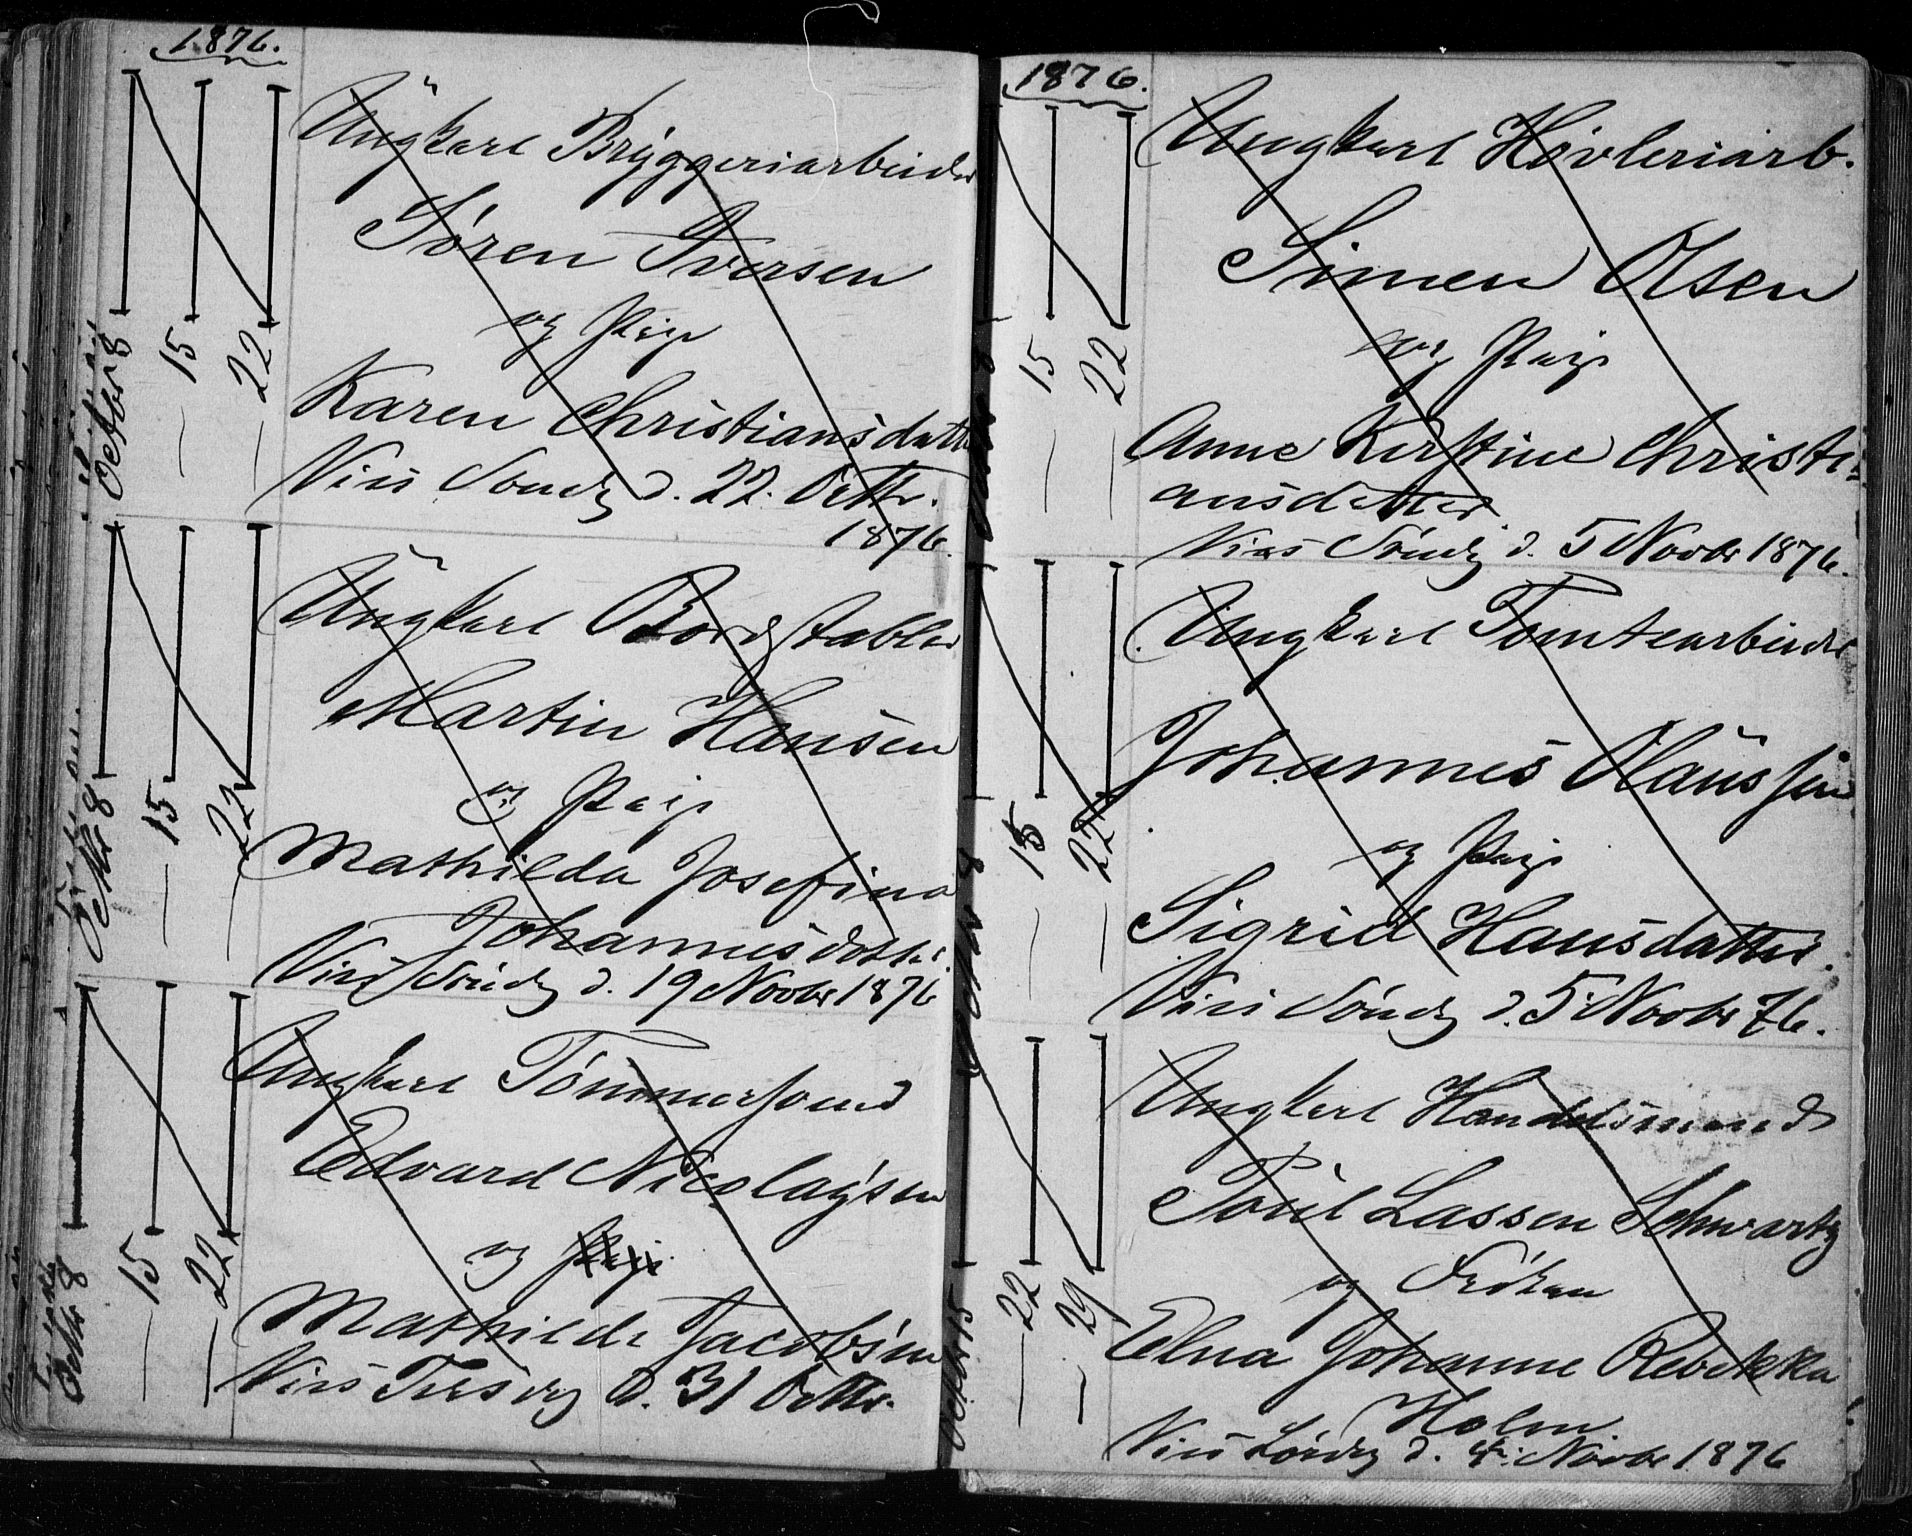 1876.
Octbr 8 15 22
Ungkarl Bryggeriarbeider
Søren Iversen
og Pige
Karen Christiansdatter
Vies Søndg d. 22. Octbr.
1876.
Octbr 8 15 22
Ungkarl Bordstabler
Martin Hansen
og Pige
Mathilda Josefina
Johannesdotter.
Vies Søndg d. 19 Novbr 1876
Octbr 8 15 22
Ungkarl Tømmersvend
Edvard Nicolaysen
og Pige
Mathilde Jacobsen
Vies Tirsdag d. 31 Octbr.
1876.
15 22
Ungkarl Høvleriarb.
Simen Olsen
og Pige
Anne Kirstine Christi-
ansdatter.
Vies Søndg d. 5 Novbr 1876.
Octbr 8 15 22
Ungkarl Tomtearbeider
Johannes Olaussen
og Pige
Sigrid Hansdatter.
Vies Søndg d. 5 Novbr 76.
Octbr 15 22 29
Ungkarl Handelsmand
Poul Lassen Schwartz
og Frøken
Elna Johanne Rebekka
Holm
Vies Lørdg d. 4. Novbr 1876